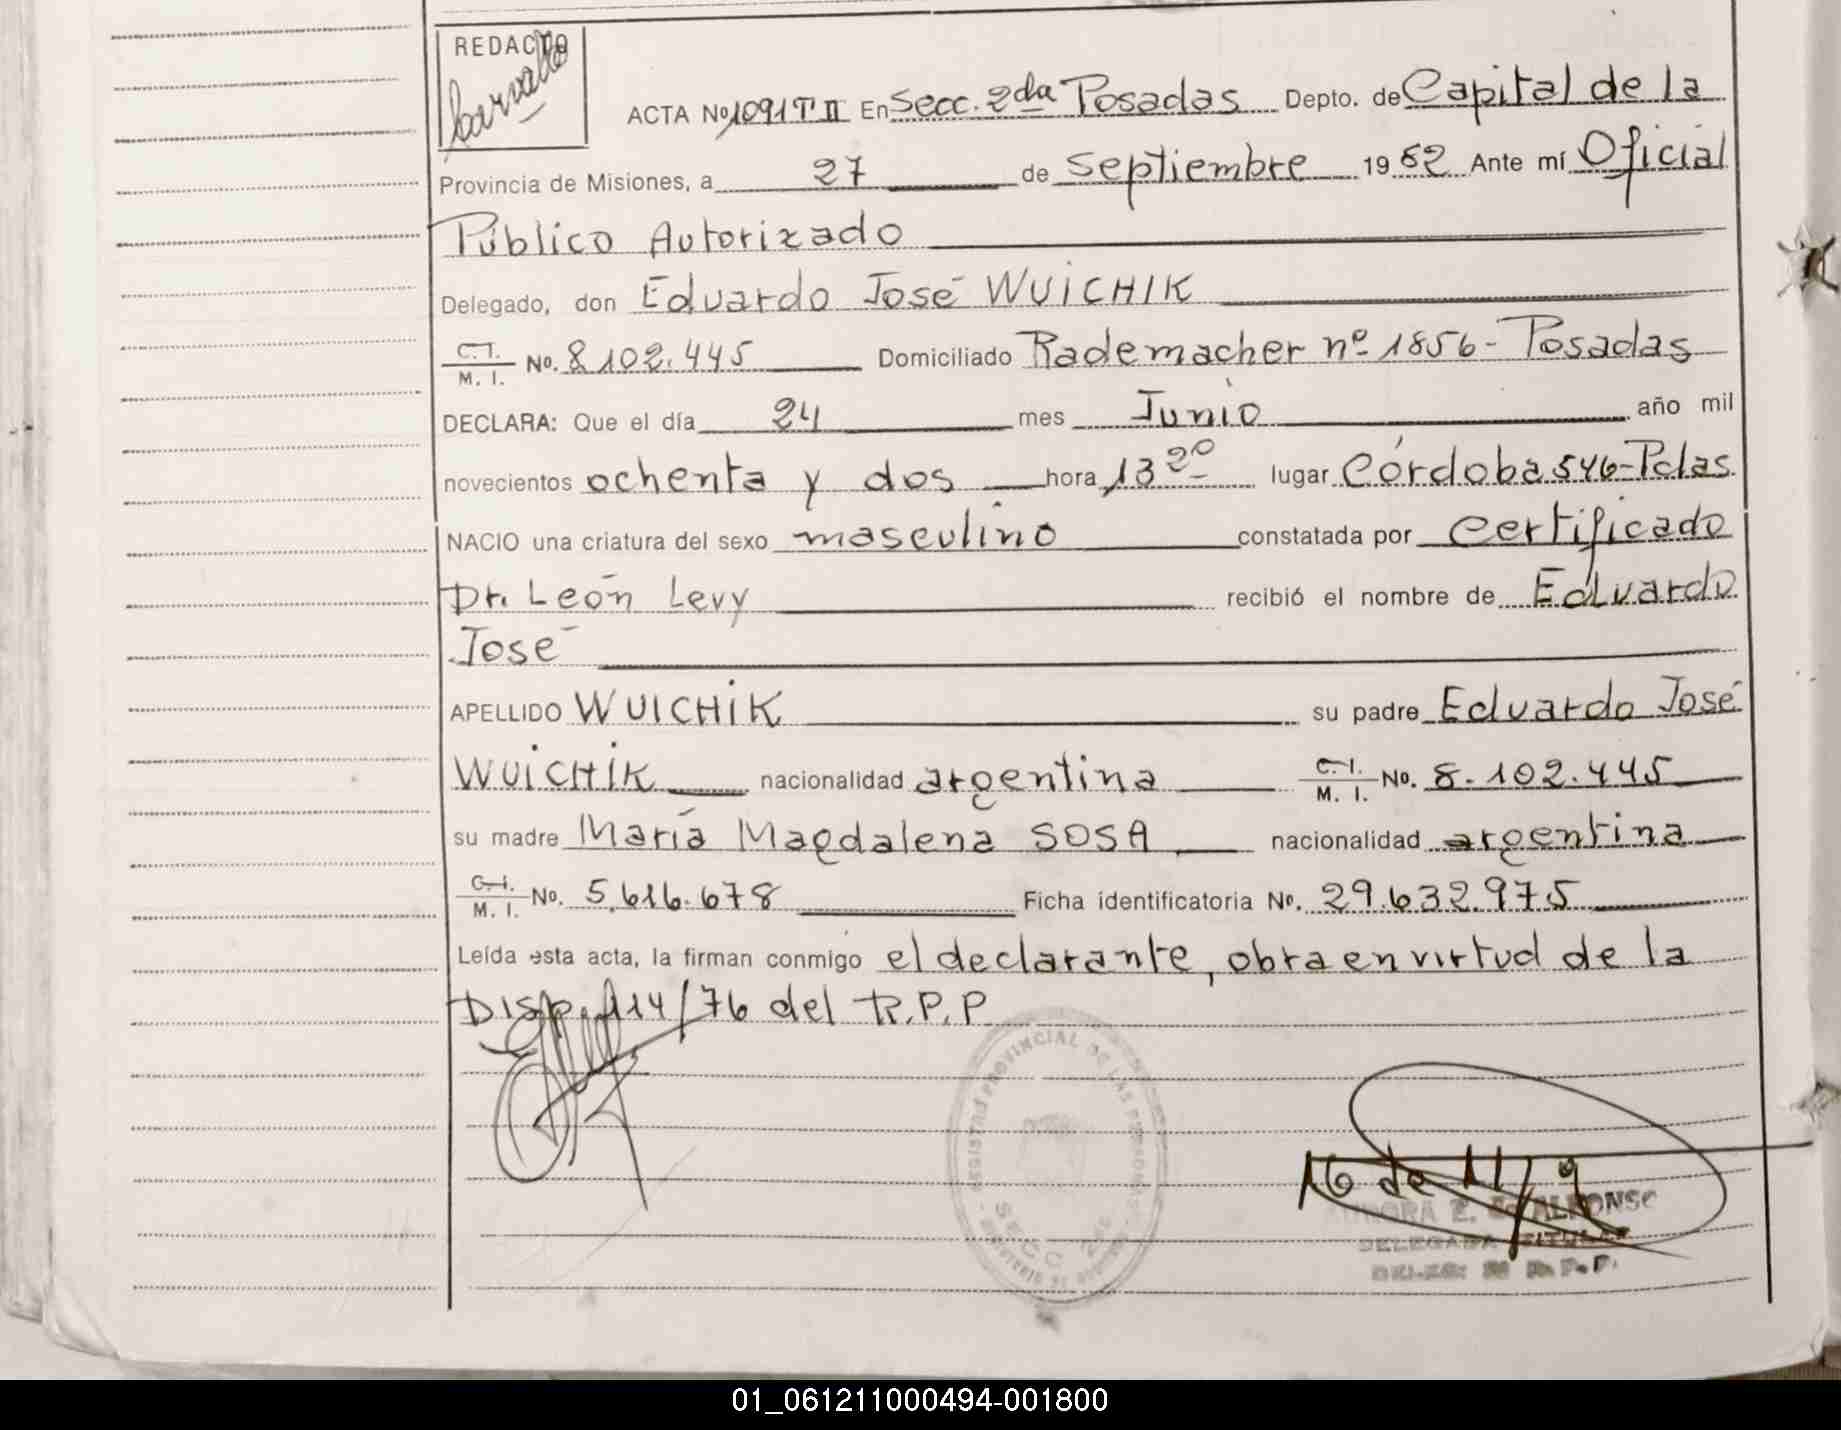 REDACTO
Carvallo
ACTA No 1091 T II En Secc. 2da Posadas Depto. de Capital de la
Provincia de Misiones, a 27 de Septiembre 1982 Ante mí Oficial
Público Autorizado
Delegado, don Eduardo José WUICHIK
C.I. M. I. No. 8.102.445 Domiciliado Rademacher nº 1856- Posadas
DECLARA: Que el día 24 mes Junio año mil
novecientos ochenta y dos hora 13 20 lugar Córdoba 546-Pdas.
NACIO una criatura del sexo masculino constatada por Certificado
Dr. León Levy recibió el nombre de Eduardo
José
APELLIDO WUICHIK su padre Eduardo José
WUICHIK nacionalidad argentina C.I. M. I. No. 8.102.445
su madre María Magdalena SOSA nacionalidad argentina
C.I. M. I. No. 5.616.678 Ficha identificatoria No. 29.632.975
Leída esta acta, la firman conmigo el declarante, obra en virtud de la
Disp. 114/76 del R.P.P
REGISTRO PROVINCIAL DE LAS PERSONAS
SECC. 2da.
16 de 11/9
AURORA E. de ALFONSO
DELEGADA TITULAR
R. P. P.
01_061211000494-001800